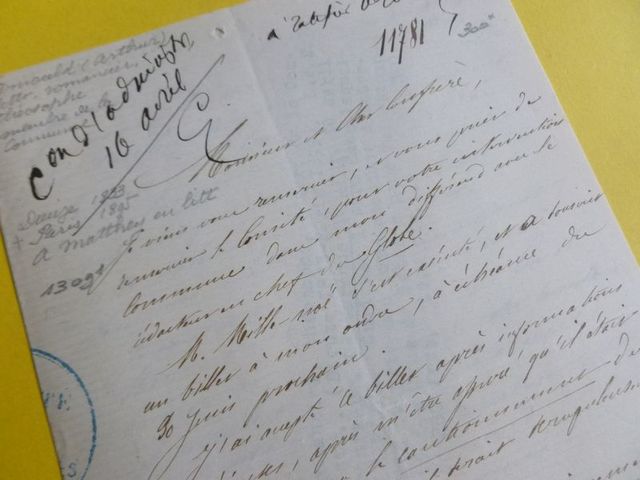 11781
300
Arnould (Arthur)
romancier
théosophe
membre de la
Commune
Con d'administ.
16 avril
Monsieur et cher Confrère,
Dieuze 1833
+ Paris 1895
A Matthey en litt
1309
Je viens vous remercier, et vous prier de
remercier le Comité, pour votre intervention
commune dans mon différend avec le
rédacteur en chef du Globe.
M. s'est exécuté, et a souscrit
un billet à mon ordre, à échéance du
30 Juin prochain.
J'ai accepté ce billet après informations
prises, après m'être assuré qu'il était
le cautionnement du
il droit